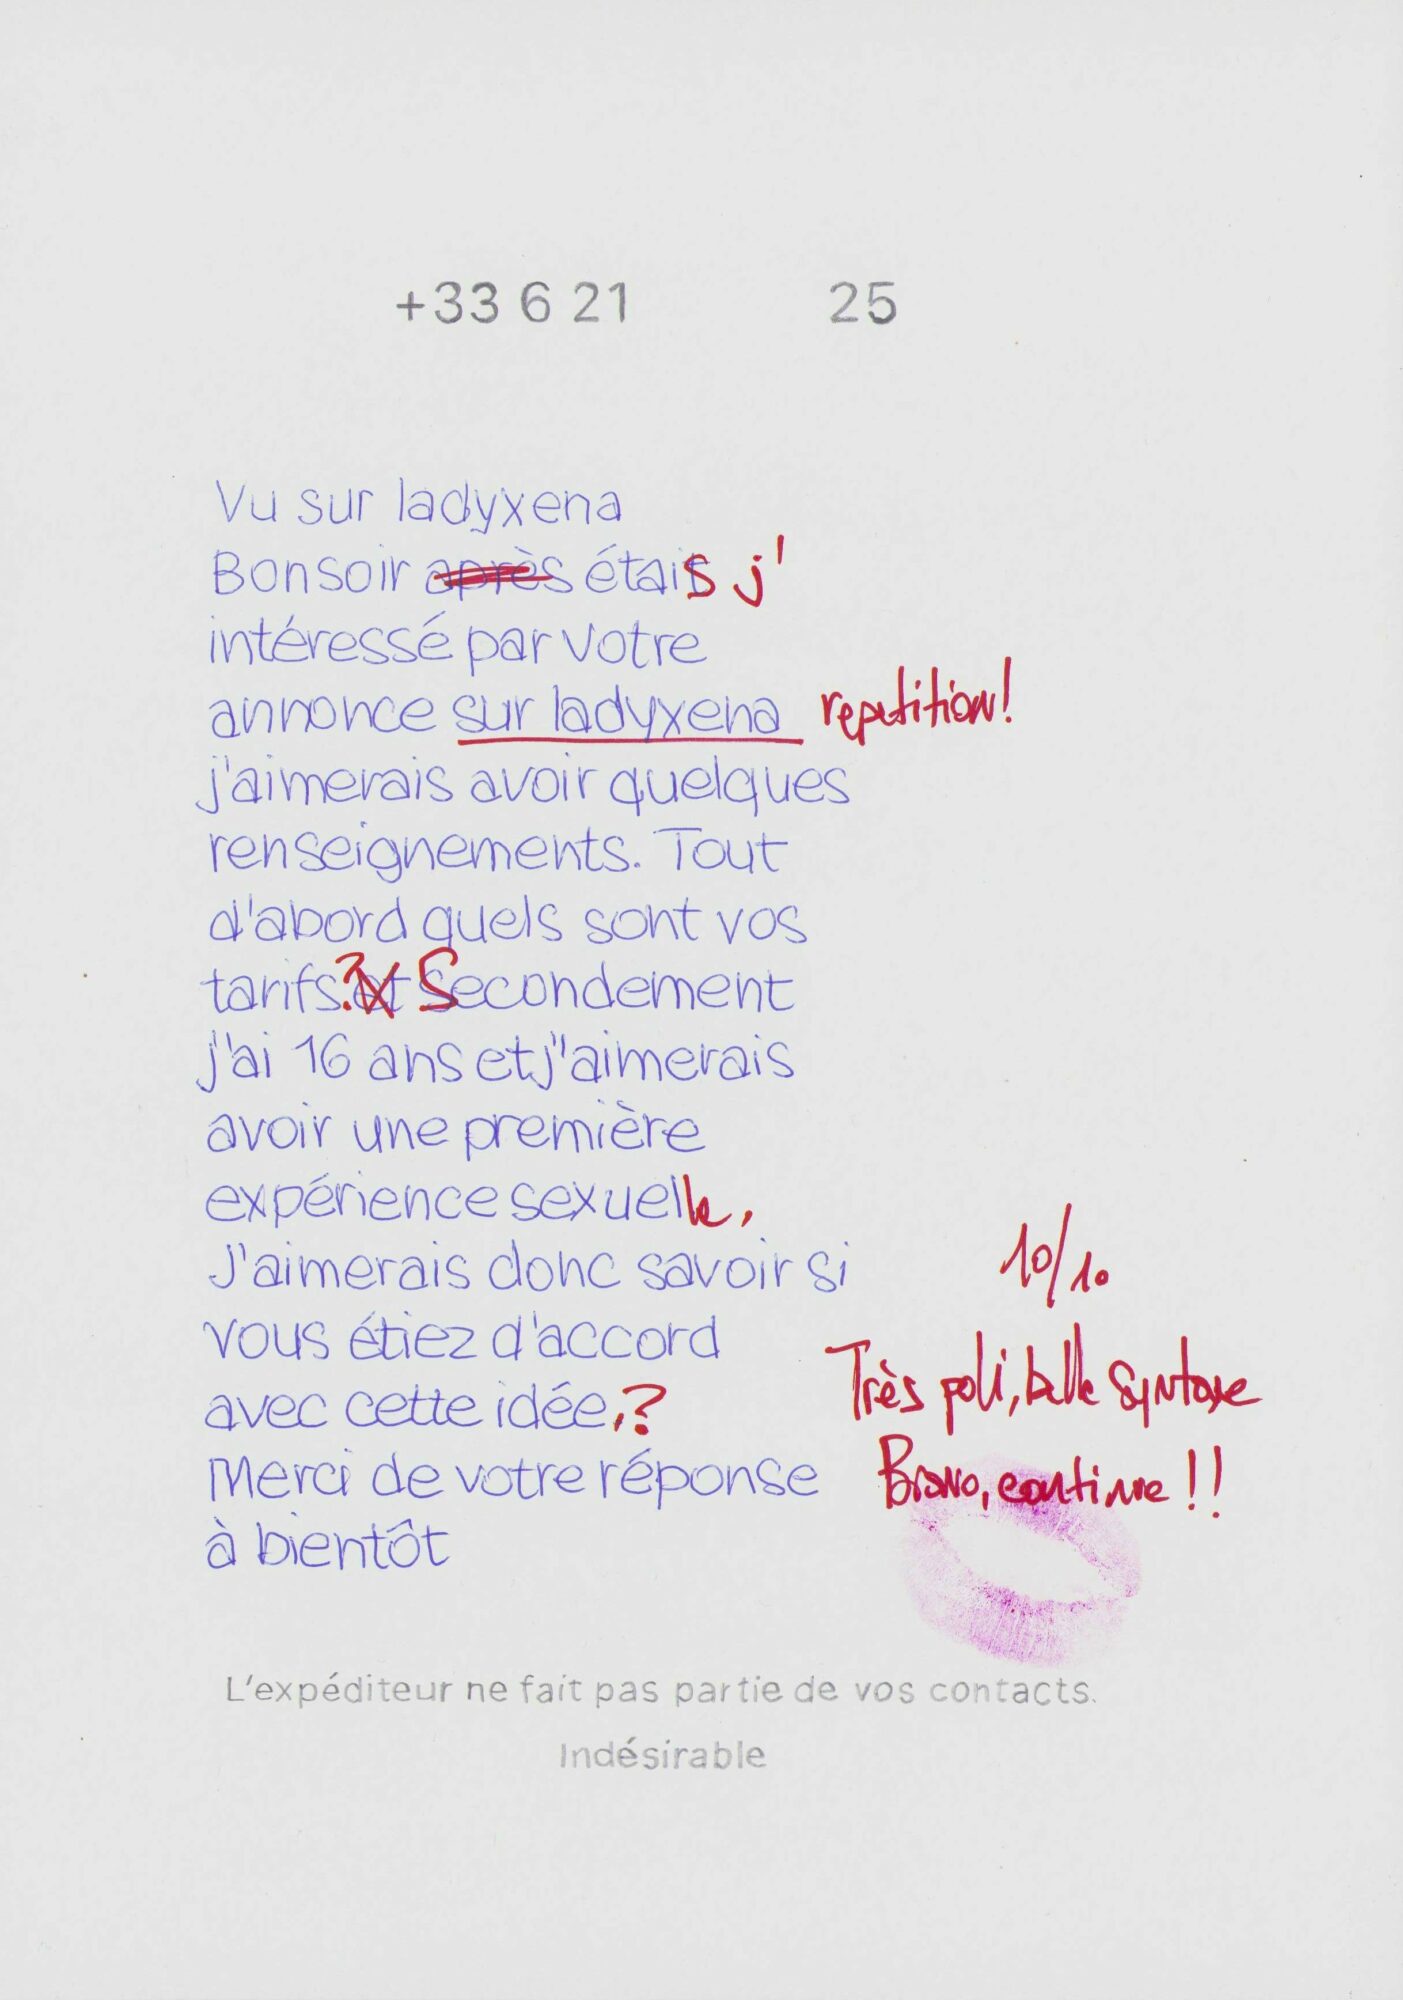 +33 6 21 25
Vu sur ladyxena
Bonsoir après étais j'
intéressé par votre
annonce sur ladyxena repetition!
j'aimerais avoir quelques
renseignements. Tout
d'abord quels sont vos
tarifs.? et Secondement
j'ai 16 ans et j"aimerais
avoir une première
expérience sexuelle,
J'aimerais donc savoir si
vous étiez d'accord
avec cette idée.?
Merci de votre réponse
à bientôt
10/10
Très poli, belle syntaxe
Bravo, continue !!
L'expéditeur ne fait pas partie de vos contacts.
Indésirable